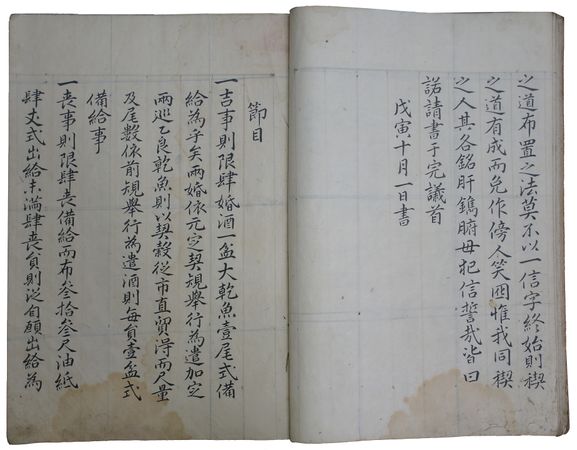 之道布置之法莫不以一信字終始則稧
之道有成而免作傍人笑囮惟我同稧
之人其各銘肝鐫腑毋犯信誓哉皆曰
諾請書于完議首
戊寅十月一日書
節目
一吉事則限肆婚酒一盆大乾魚壹尾式備
給為乎矣兩婚依元定契規舉行為遣加定
兩巡乙良乾魚則以契穀從市直貿得而尺量
及尾數依前規舉行為遣酒則每負壹盆式
備給事
一喪事則限肆喪備給而布叄拾叄尺油紙
肆丈式出給未滿肆喪負則從自願出給為